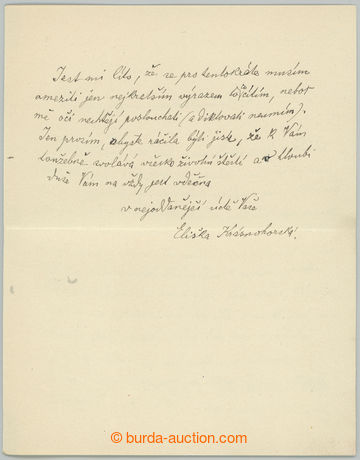 Jest mi líto, že se pro tentokráte musím
omeziti jen nejkratším výrazem těch citům, neboť
mé oči nechtějí poslouchati (a diktovati neumím).
Jen prosím, abyste ráčila býti jista, že k Vám
toužebně svolává všecko životní štěstí a z hloubi
duše Vám na vždy jest vděčna
v nejoddanější úctě Vaše
Eliška Krásnohorská.
© burda-auction.com